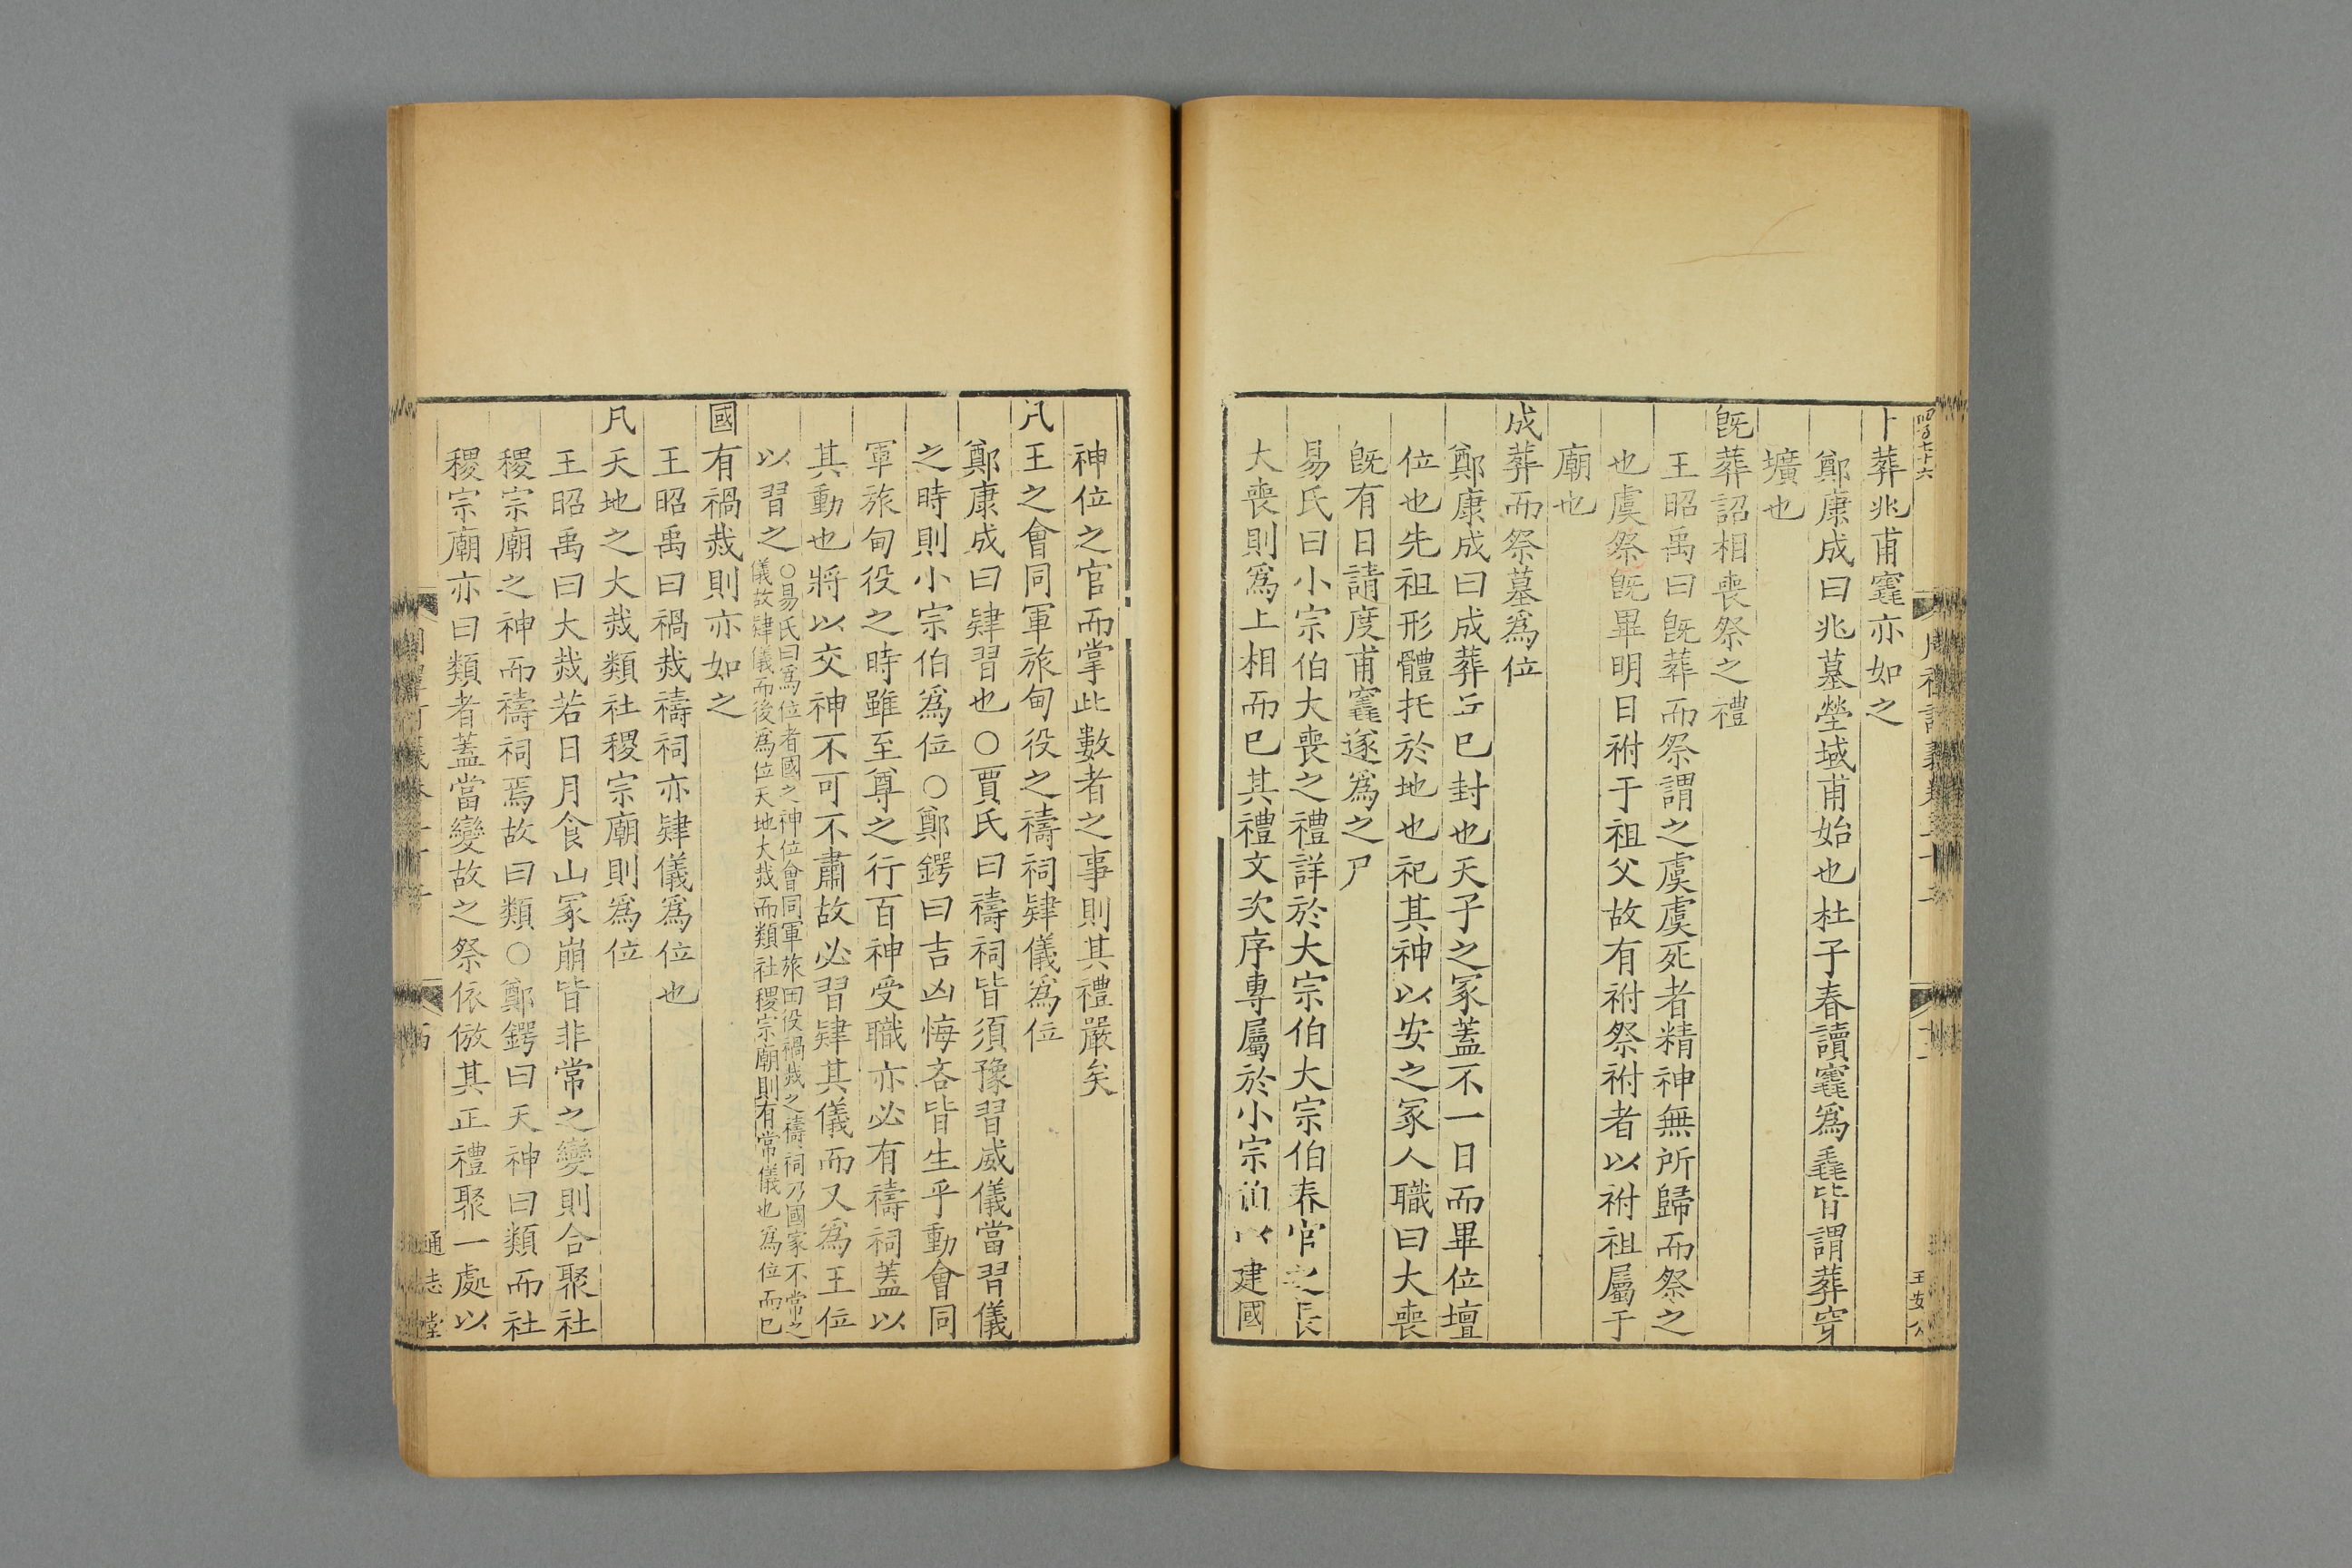 卜葬兆甫竁亦如之
鄭康成曰兆墓塋域甫始也杜子春讀竁爲毳皆謂葬穿
壙也
旣葬詔相喪祭之禮
王昭禹曰旣葬而祭謂之虞虞死者精神無所歸而祭之
也虞祭旣畢明日祔于祖父故有祔祭祔者以祔祖屬于
廟也
成葬而祭墓爲位
鄭康成曰成葬丘已封也天子之冢蓋不一日而畢位壇
位也先祖形體托於地也祀其神以安之冢人職曰大喪
旣有日請度甫竁遂爲之尸
易氏曰小宗伯大喪之禮詳於大宗伯大宗伯春官之長
大喪則爲上相而已其禮文次序專屬於小宗伯以建國
神位之官而掌此數者之事則其禮嚴矣
凡王之會同軍旅甸役之禱祠肄儀爲位
鄭康成曰肄習也○賈氏曰禱祠皆須豫習威儀當習儀
之時則小宗伯爲位○鄭鍔曰吉凶悔吝皆生乎動會同
軍旅甸役之時雖至尊之行百神受職亦必有禱祠蓋以
其動也將以交神不可不肅故必習肄其儀而又爲王位
以習之○易氏曰爲位者國之神位會同軍旅田役禍烖之禱祠乃國家不常之
儀故肄儀而後爲位天地大烖而類社稷宗廟則有常儀也爲位而已
國有禍烖則亦如之
王昭禹曰禍烖禱祠亦肄儀爲位也
凡天地之大烖類社稷宗廟則爲位
王昭禹曰大烖若日月食山冢崩皆非常之變則合聚社
稷宗廟之神而禱祠焉故曰類○鄭鍔曰天神曰類而社
稷宗廟亦曰類者蓋當變故之祭依倣其正禮聚一處以
通志堂